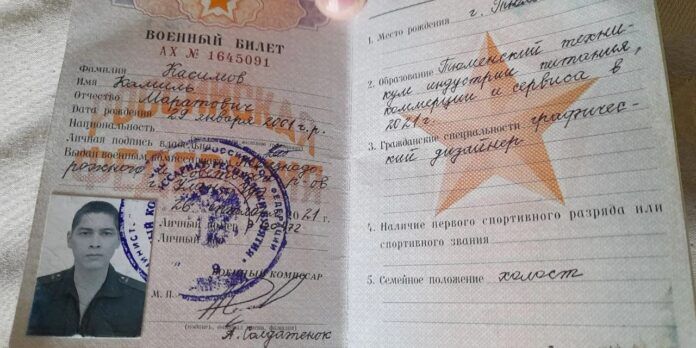 ВОЕННЫЙ БИЛЕТ
АХ № 1645091
Фамилия Касимов
Имя Камиль
Отчество Маратович
Дата рождения 29 января 2001 г.р.
Национальность
Личная подпись владельца
Выдан военным комиссариатом
Личный номер
ВОЕННЫЙ КОМИССАР
М. П.
(подпись,
А. Солдатенок
1. Место рождения г. Тюм
2. Образование Тюменский техни-
кум индустрии питания,
коммерции и сервиса в
2021 г.
3. Гражданские специальности графичес-
кий дизайнер
4. Наличие первого спортивного разряда или
спортивного звания
5. Семейное положение холост